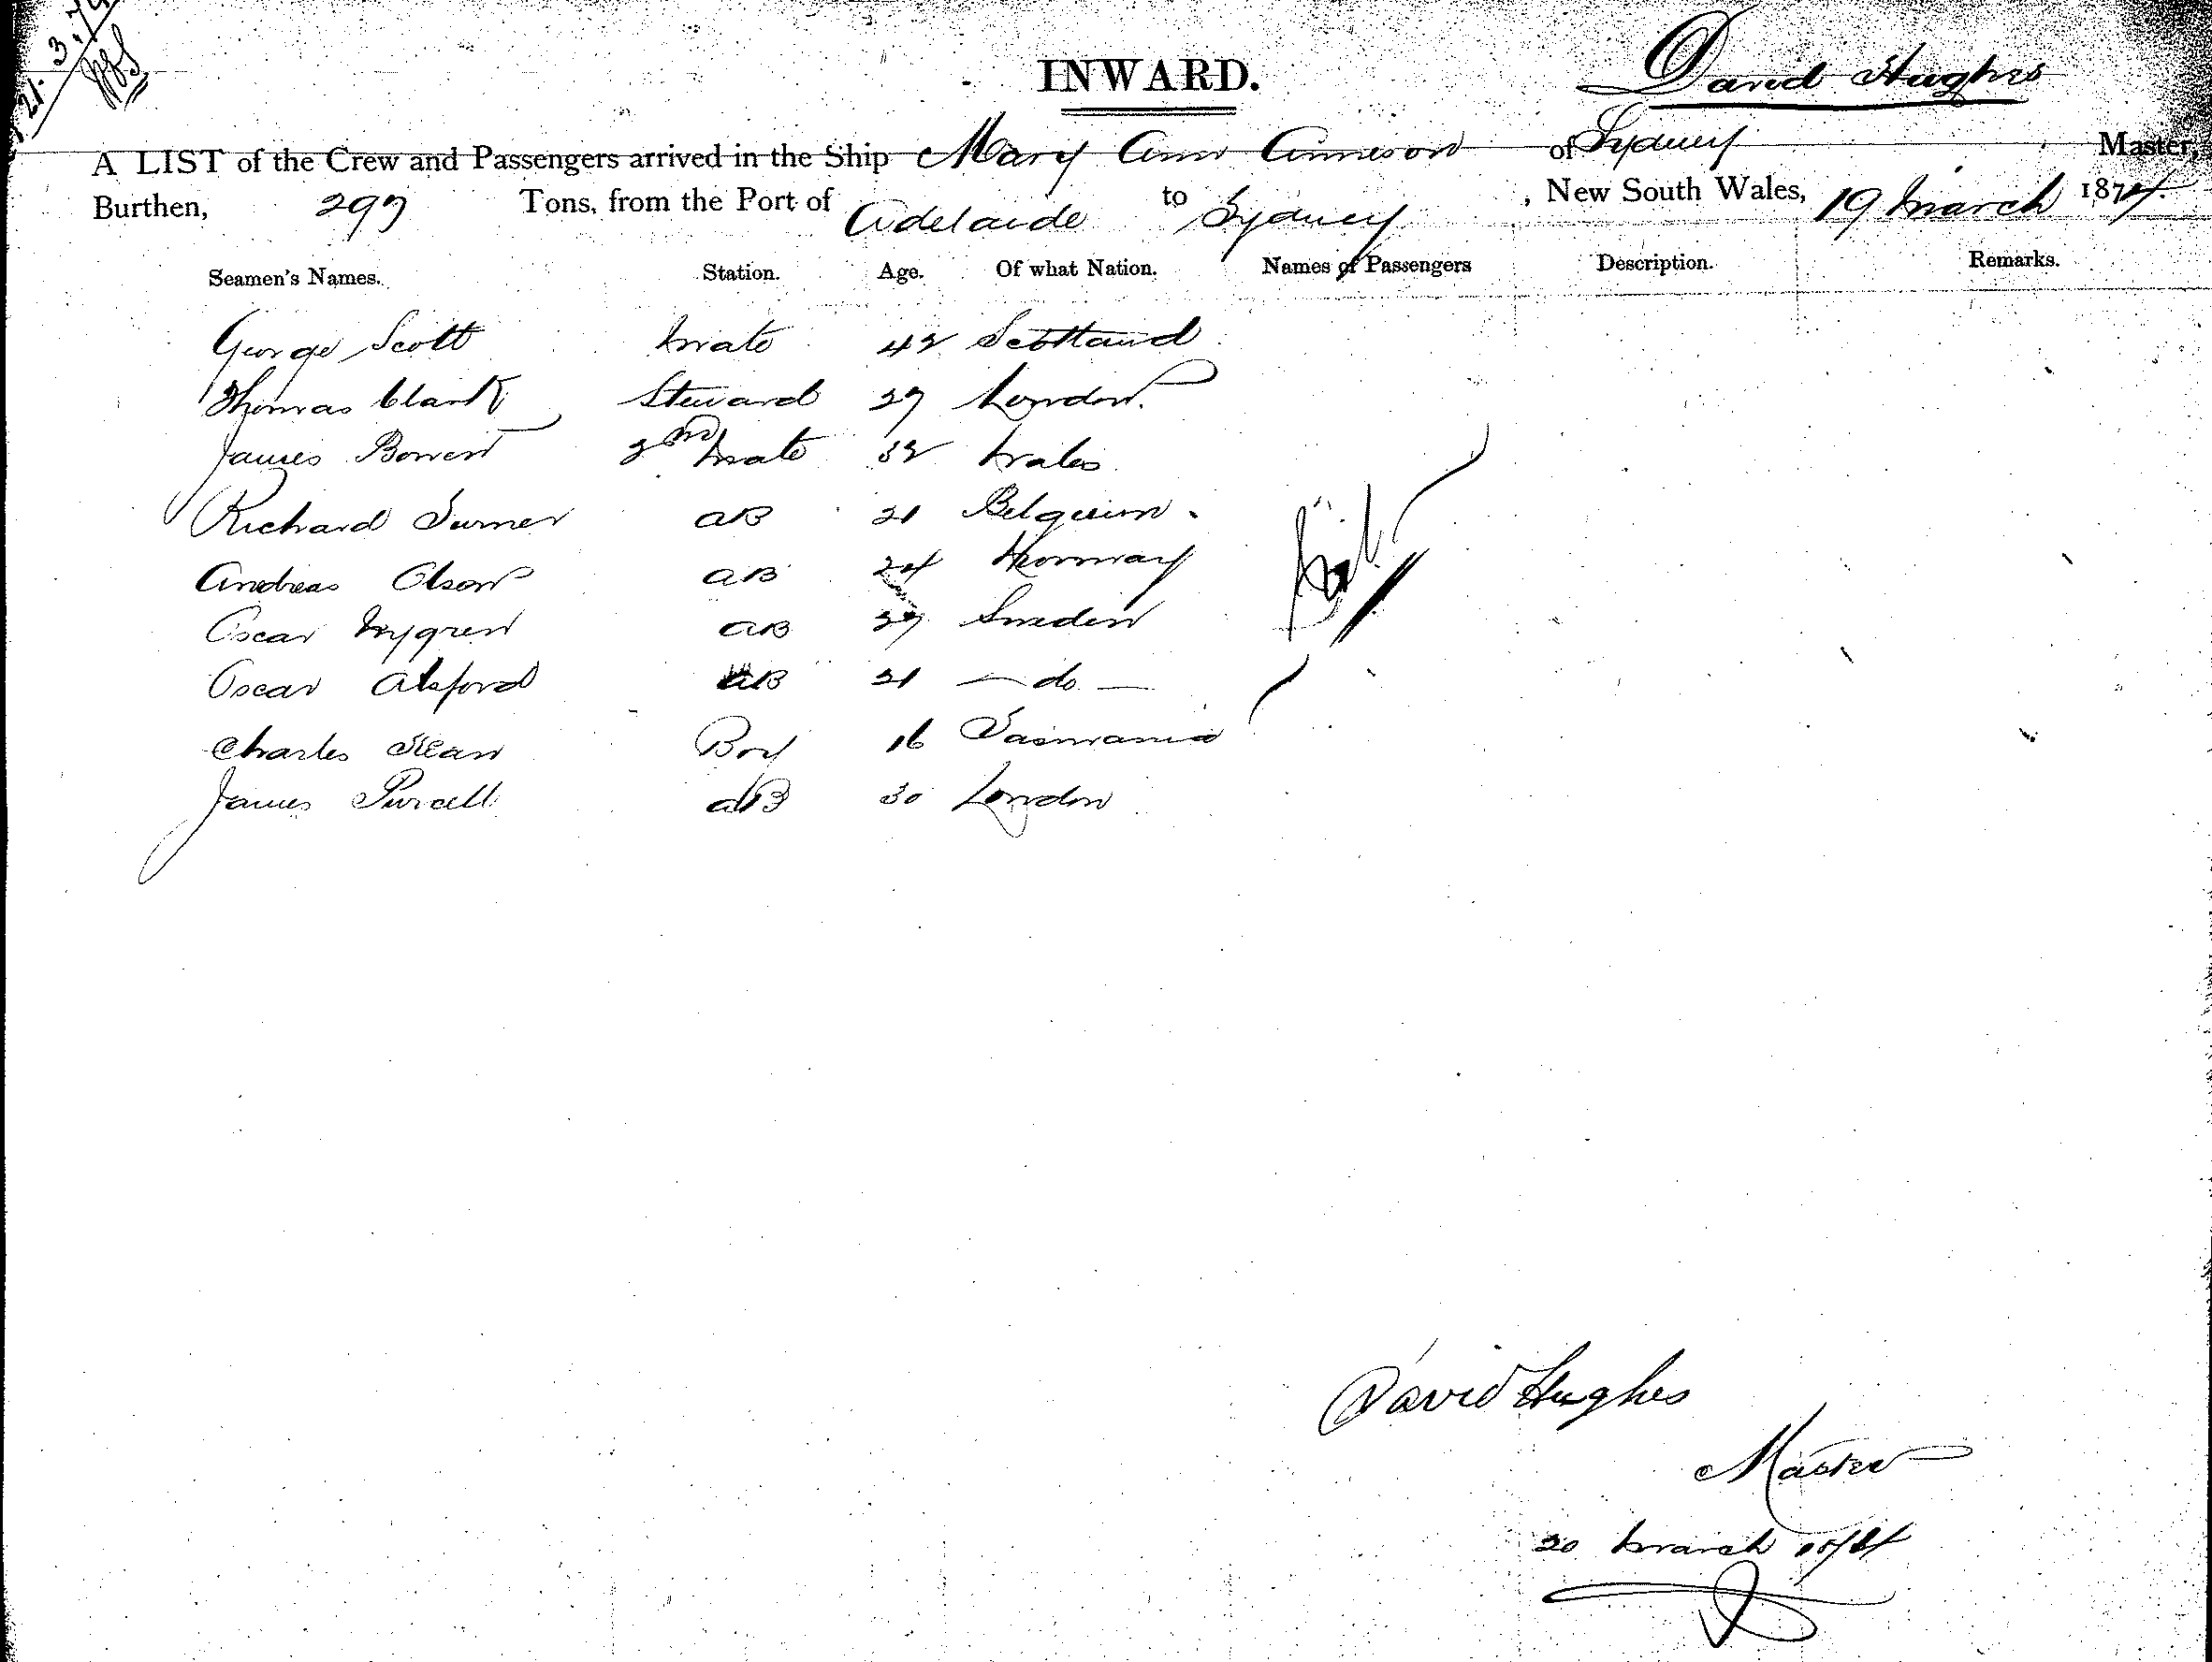 21.3.74
INWARD.
David Hughes
A LIST of the Crew and Passengers arrived in the Ship Mary Ann Annison of Sydney Master,
Burthen, 297 Tons, from the Port of Adelaide to Sydney, New South Wales, 19 March 1874.
Seamen's Names. Station. Age. Of what Nation. Names of Passengers Description. Remarks.
George Scott Mate 42 Scottland
Thomas Clark Steward 27 London.
James Bowen 2nd Mate 32 Wales
Richard Turner AB 21 Belgium.
Andreas Olson AB 24 Norway
Oscar Nygren AB 27 Sweden
Oscar Alsford AB 21 — do —
Charles Kean Boy 16 Tasmania
James Purcell AB 30 London
Nil
David Hughes
Master
20 March 1874